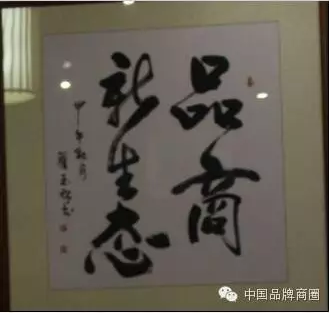 品商
新生态
甲午秋月
中国品牌商圈